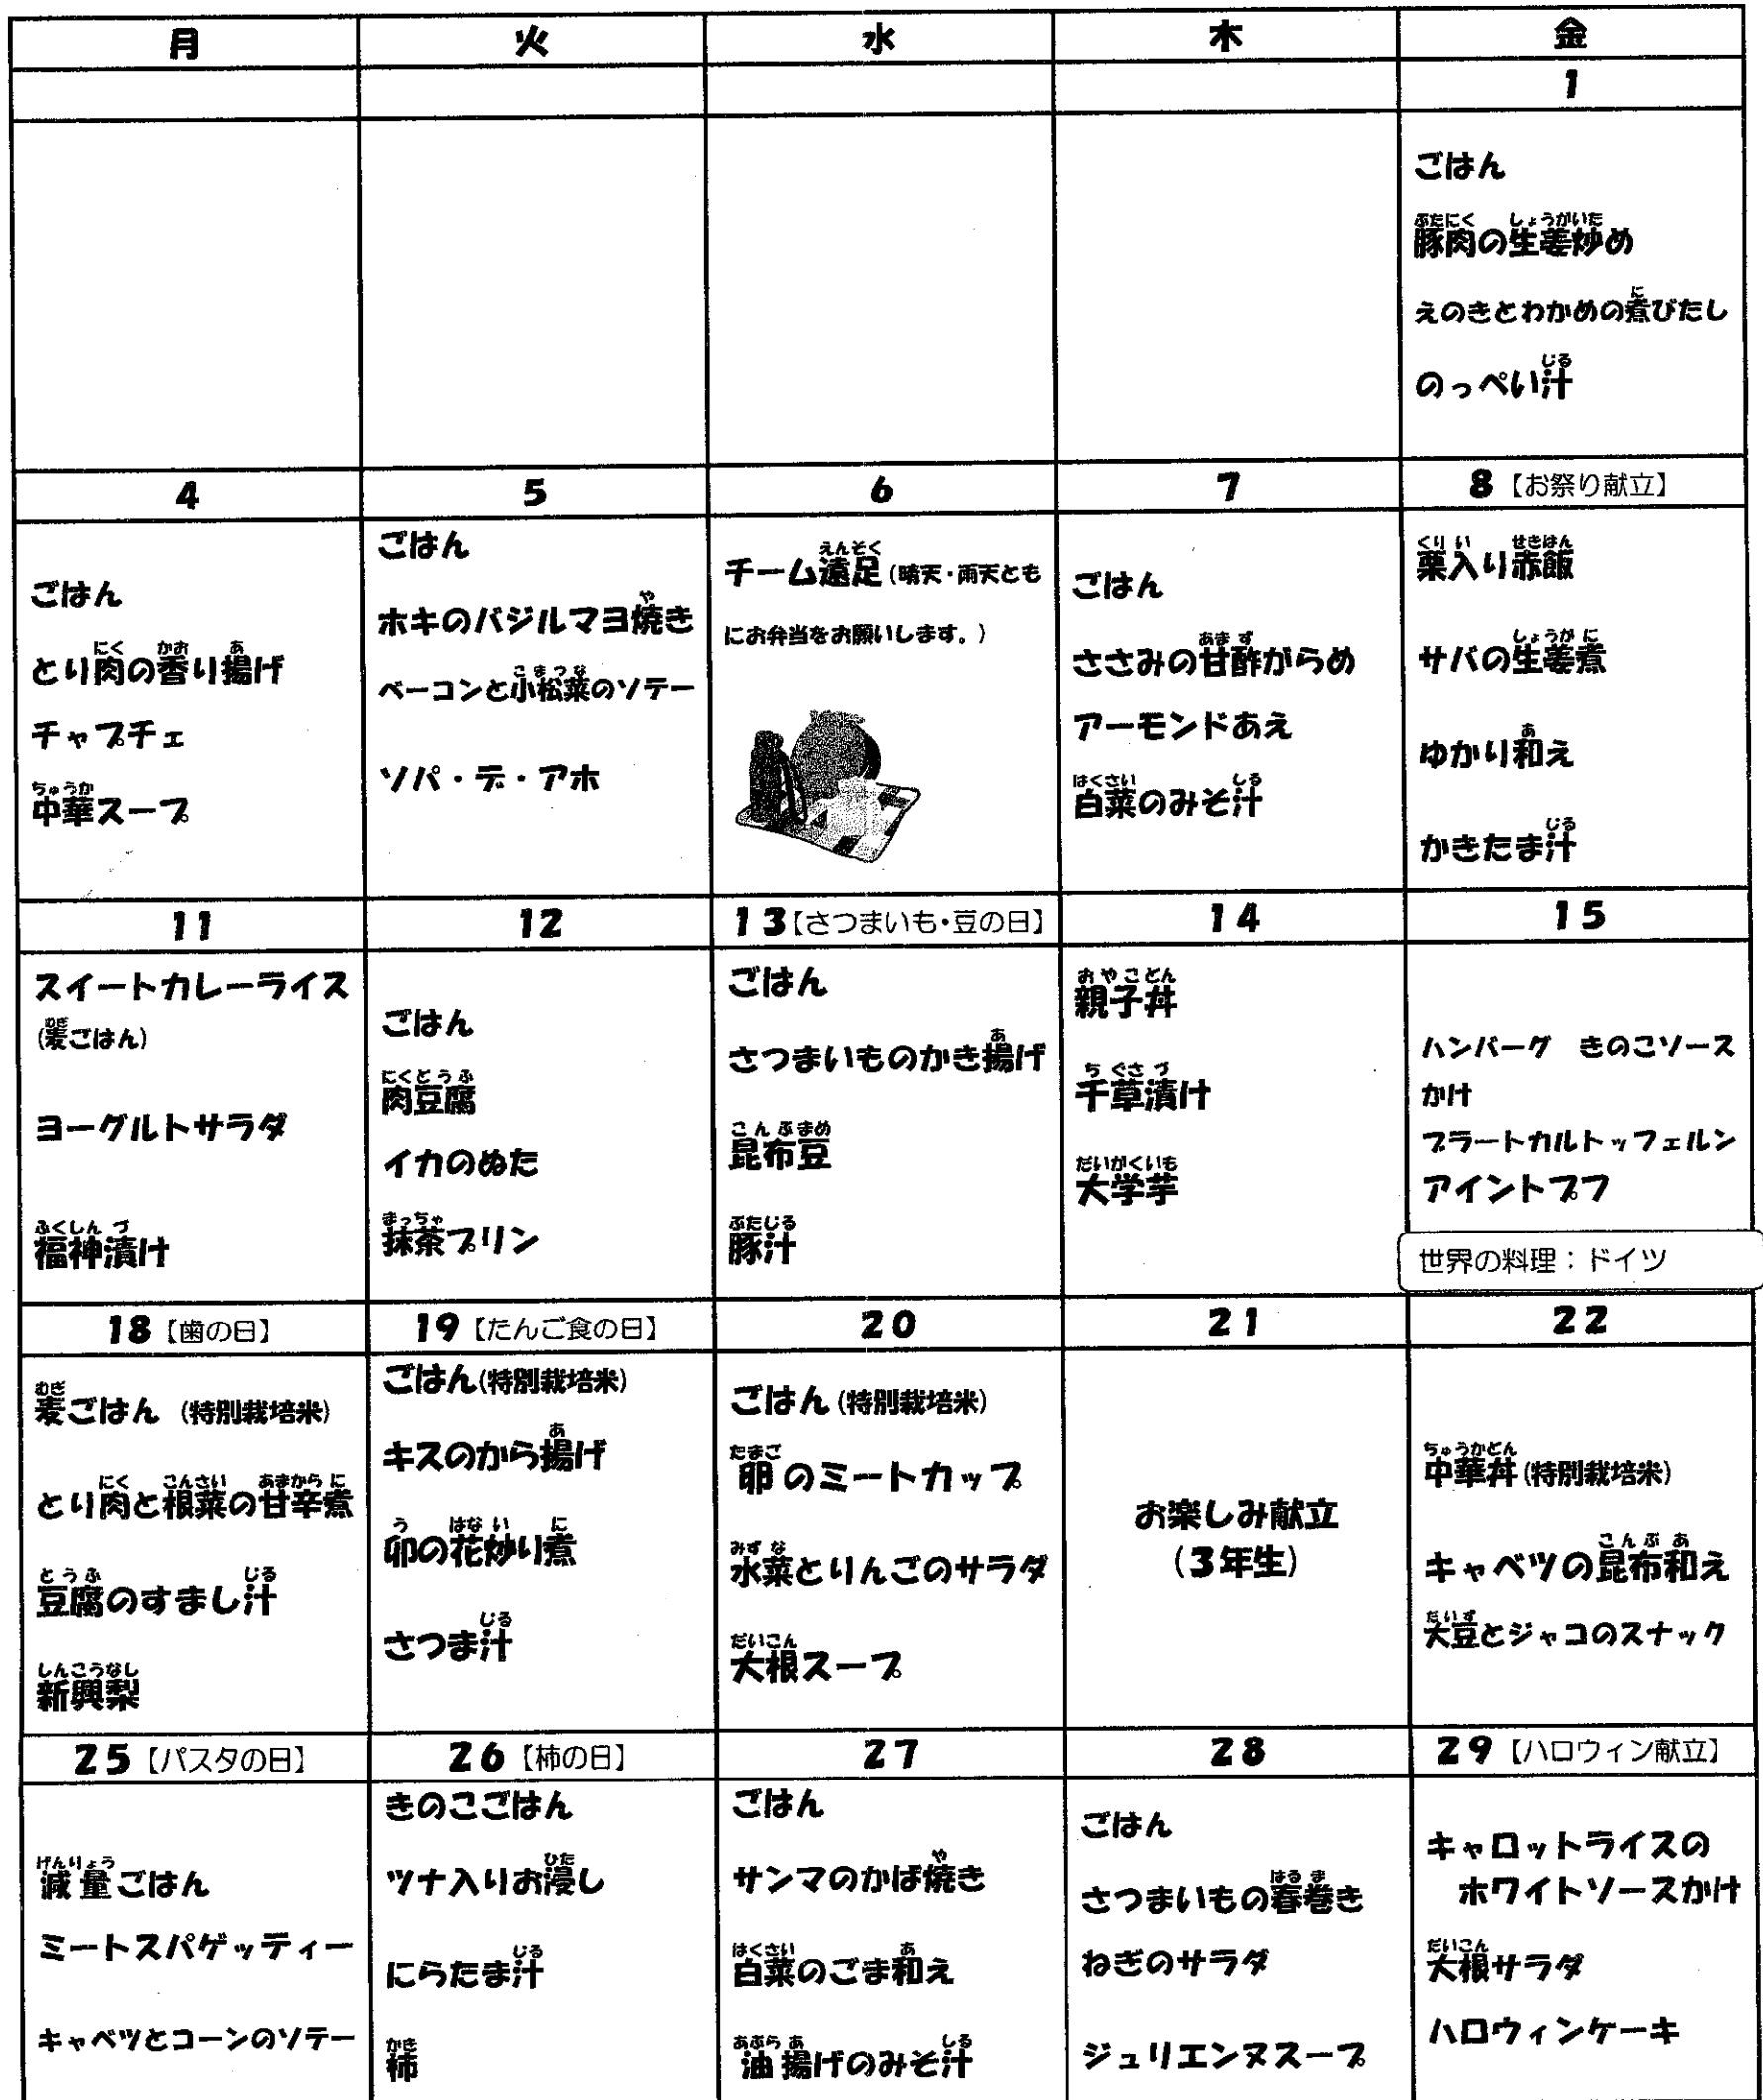 月 火 水 木 金
1
ごはん
豚肉の生姜炒め
えのきとわかめの煮びたし
のっぺい汁
4 5 6 7 8【お祭り献立】
ごはん
とり肉の香り揚げ
チャプチェ
中華スープ
ごはん
ホキのバジルマヨ焼き
ベーコンと小松菜のソテー
ソパ・デ・アホ
チーム遠足(晴天・雨天とも
にお弁当をお願いします。)
ごはん
ささみの甘酢がらめ
アーモンドあえ
白菜のみそ汁
栗入り赤飯
サバの生姜煮
ゆかり和え
かきたま汁
11 12 13【さつまいも・豆の日】 14 15
スイートカレーライス
(麦ごはん)
ヨーグルトサラダ
福神漬け
ごはん
肉豆腐
イカのぬた
抹茶プリン
ごはん
さつまいものかき揚げ
昆布豆
豚汁
親子丼
千草漬け
大学芋
ハンバーグ きのこソース
かけ
ブラートカルトッフェルン
アイントプフ
世界の料理：ドイツ
18【歯の日】 19【たんご食の日】 20 21 22
麦ごはん (特別栽培米)
とり肉と根菜の甘辛煮
豆腐のすまし汁
新興梨
ごはん(特別栽培米)
キスのから揚げ
卯の花炒り煮
さつま汁
ごはん(特別栽培米)
卵のミートカップ
水菜とりんごのサラダ
大根スープ
お楽しみ献立
(3年生)
中華丼(特別栽培米)
キャベツの昆布和え
大豆とジャコのスナック
25【パスタの日】 26【柿の日】 27 28 29【ハロウィン献立】
減量ごはん
ミートスパゲッティー
キャベツとコーンのソテー
きのこごはん
ツナ入りお浸し
にらたま汁
柿
ごはん
サンマのかば焼き
白菜のごま和え
油揚げのみそ汁
ごはん
さつまいもの春巻き
ねぎのサラダ
ジュリエンヌスープ
キャロットライスの
ホワイトソースかけ
大根サラダ
ハロウィンケーキ